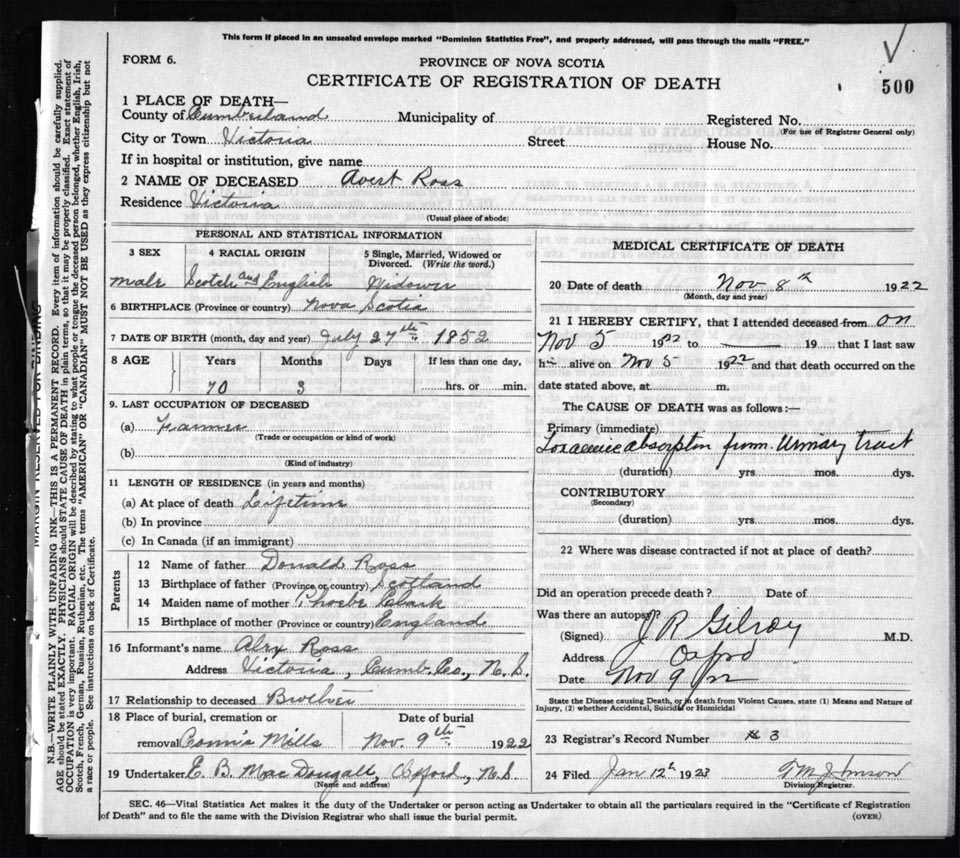 This form if placed in an unsealed envelope marked "Dominion Statistics Free", and properly addressed, will pass through the mails "FREE."
FORM 6.
PROVINCE OF NOVA SCOTIA
500
CERTIFICATE OF REGISTRATION OF DEATH
1 PLACE OF DEATH—
County of Cumberland Municipality of Registered No.
(For use of Registrar General only)
City or Town Victoria Street House No.
If in hospital or institution, give name
2 NAME OF DECEASED Avert Ross
Residence Victoria
(Usual place of abode)
PERSONAL AND STATISTICAL INFORMATION
3 SEX 4 RACIAL ORIGIN 5 Single, Married, Widowed or Divorced. (Write the word.)
male Scotch and English Widower
6 BIRTHPLACE (Province or country) Nova Scotia
7 DATE OF BIRTH (month, day and year) July 27th 1852
8 AGE Years Months Days If less than one day,
70 3 hrs. or min.
9. LAST OCCUPATION OF DECEASED
(a) Farmer
(Trade or occupation or kind of work)
(b)
(Kind of industry)
11 LENGTH OF RESIDENCE (in years and months)
(a) At place of death Lifetime
(b) In province
(c) In Canada (if an immigrant)
Parents
12 Name of father Donald Ross
13 Birthplace of father (Province or country) Scotland
14 Maiden name of mother Phoebe Clark
15 Birthplace of mother (Province or country) England
16 Informant's name Ross
Address Victoria, Cumb. Co., N.S.
17 Relationship to deceased Brother
18 Place of burial, cremation or Date of burial
removal Conn's Mills Nov. 9th 1922
19 Undertaker E. B. MacDougall, Oxford, N.S.
(Name and address)
MEDICAL CERTIFICATE OF DEATH
20 Date of death Nov 8th 1922
(Month, day and year)
21 I HEREBY CERTIFY, that I attended deceased from on
Nov 5 1922 to 19 that I last saw
h alive on Nov 5 1922 and that death occurred on the
date stated above, at m.
The CAUSE OF DEATH was as follows:—
Primary (immediate)
Toxaemic absorption from Urinary tract
(duration) yrs mos. dys.
CONTRIBUTORY
(Secondary)
(duration) yrs. mos. dys.
22 Where was disease contracted if not at place of death?
Did an operation precede death? Date of
Was there an autopsy?
(Signed) J R Gilroy M.D.
Address Oxford
Date Nov 9
State the Disease causing Death, or in death from Violent Causes, state (1) Means and Nature of
Injury, (2) whether Accidental, Suicidal or Homicidal
23 Registrar's Record Number 3
24 Filed Jan 12th 1923
Division Registrar.
SEC. 46—Vital Statistics Act makes it the duty of the Undertaker or person acting as Undertaker to obtain all the particulars required in the "Certificate of Registration
of Death" and to file the same with the Division Registrar who shall issue the burial permit. (OVER)
MARGIN RESERVED FOR BINDING
N.B.—WRITE PLAINLY WITH UNFADING INK—THIS IS A PERMANENT RECORD. Every item of information should be carefully supplied.
AGE should be stated EXACTLY. PHYSICIANS should STATE CAUSE OF DEATH in plain terms, so that it may be properly classified. Exact statement of
OCCUPATION is very important. RACIAL ORIGIN will be described by stating to what people or tongue the deceased person belonged, whether English, Irish,
Scotch, French, German, Russian, Ruthenian, etc. The terms "AMERICAN" OR "CANADIAN" MUST NOT BE USED as they express citizenship but not
a race or people. See instructions on back of Certificate.